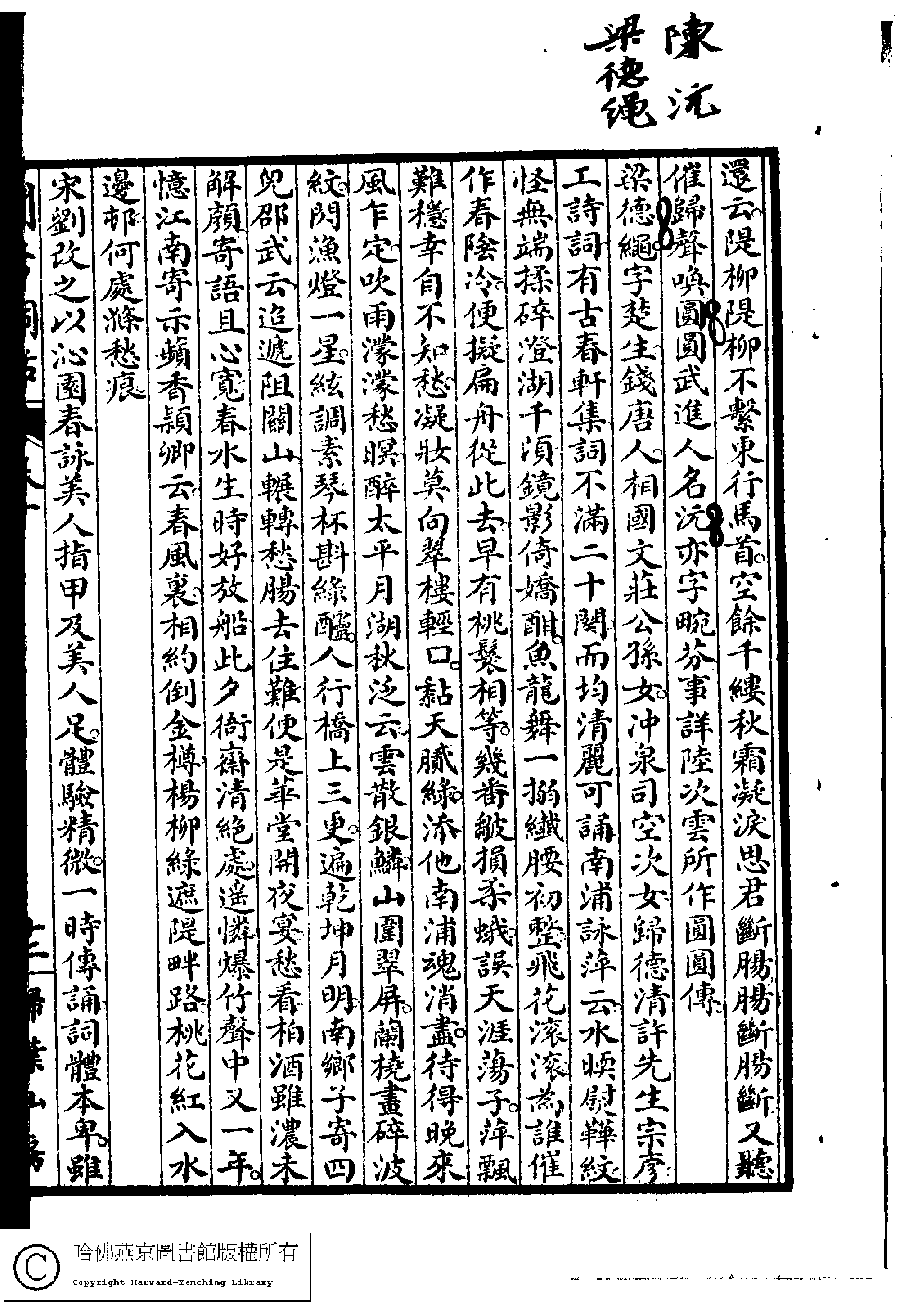 陳沅
梁德繩
還云隄柳隄柳不繫東行馬首空餘千縷秋霜凝淚思君斷腸腸斷腸斷又聽
催歸聲喚圓圓武進人名沅亦字畹芬事詳陸次雲所作圓圓傳
梁德繩字楚生錢唐人相國文莊公孫女冲泉司空次女歸德清許先生宗彥
工詩詞有古春軒集詞不滿二十闋而均清麗可誦南浦詠萍云水暎尉鞾紋
怪無端揉碎澄湖千頃鏡影倚嬌酣魚龍舞一搦纖腰初整飛花滚滚為誰催
作春陰冷便擬扁舟從此去早有桃鬟相等幾番皺損柔蛾誤天涯蕩子萍飄
難穩幸自不知愁凝妝莫向翠樓輕口黏天膩綠添他南浦魂消盡待得晚來
風乍定吹雨濛濛愁暝醉太平月湖秋泛云雲散銀鱗山圍翠屏蘭橈畫碎波
紋閃漁燈一星絃調素琴杯斟綠醽人行橋上三更遍乾坤月明南鄉子寄四
兒邵武云迢遞阻關山輾轉愁腸去住難便是華堂開夜宴愁看柏酒雖濃未
解顏寄語且心寬春水生時好放船此夕衙齋清絕處遙憐爆竹聲中又一年
憶江南寄示蘋香穎卿云春風裏相約倒金樽楊柳綠遮隄畔路桃花紅入水
邊邨何處滌愁痕
宋劉改之以沁園春詠美人指甲及美人足體驗精微一時傳誦詞體本卑雖
哈佛燕京圖書館版權所有
Copyright Harvard-Yenching Library